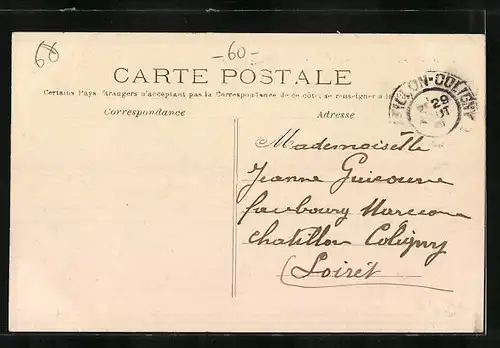 60
-60-
CARTE POSTALE
Certains Pays étrangers n'acceptant pas la Correspondance de ce côté, se renseigner à
Correspondance
Adresse
ILLON-COLIGNY
29
Mademoiselle
Jeanne
faubourg
chatillon Coligny
(Loiret)